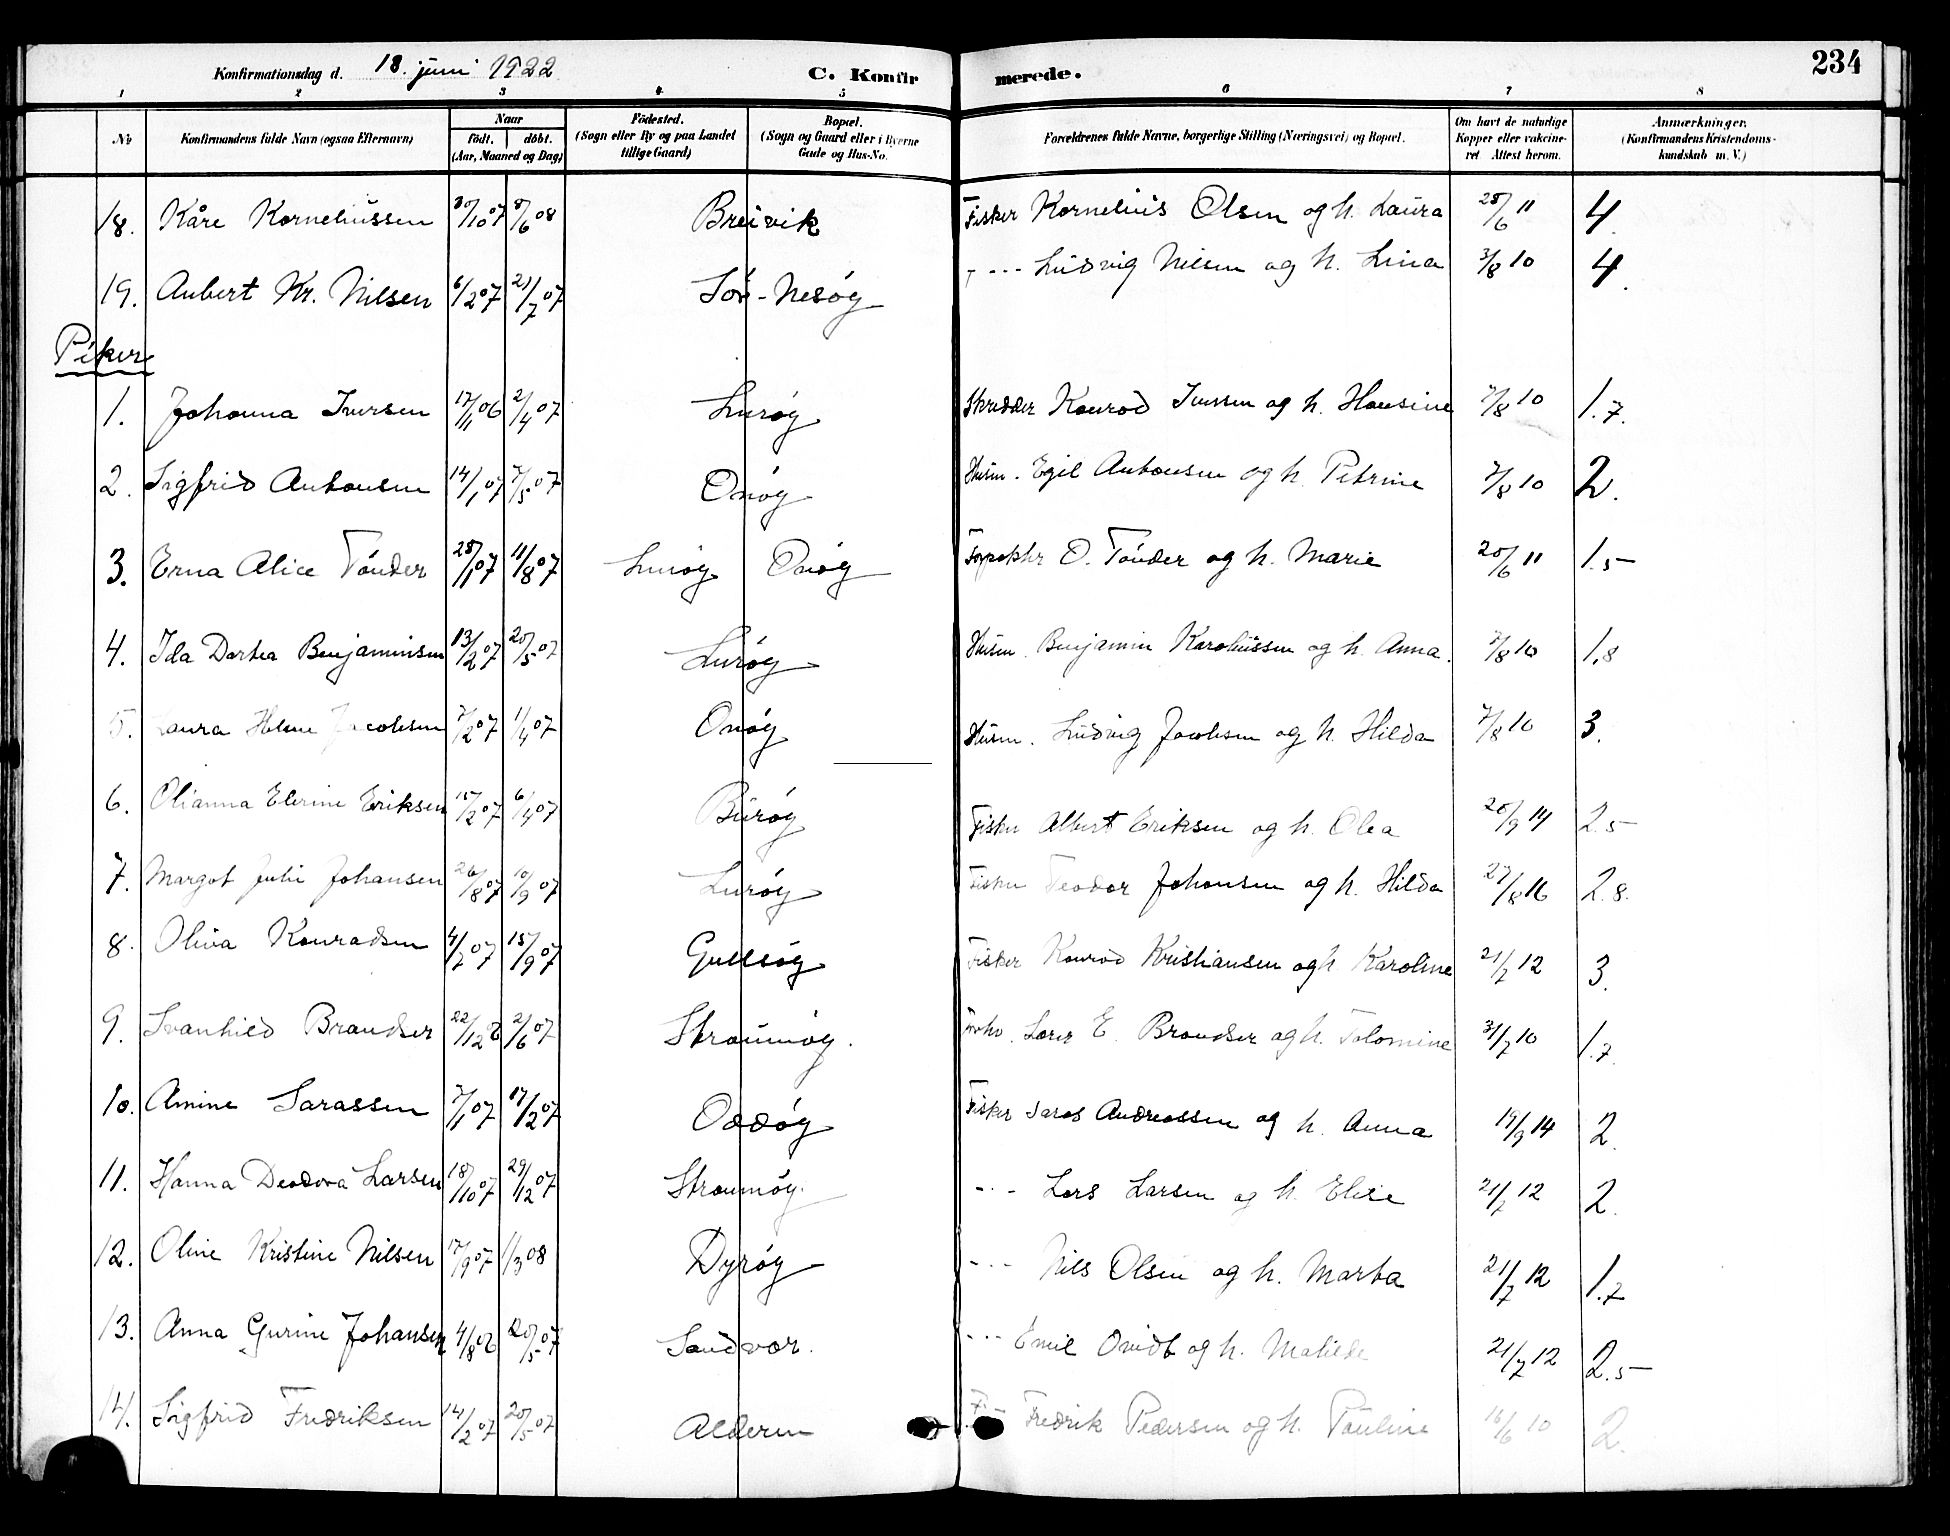 Konfirmationsdag d. 18. juni 1922 C. Konfirmerede. 234
1 2 3 4 5 6 7 8
No Konfirmandens fulde Navn (ogsaa Efternavn) Naar født. døbt. (Aar, Maaned og Dag) Fødested. (Sogn eller By og paa Landet tillige Gaard) Bopæl. (Sogn og Gaard eller i Byerne Gade og Hus-No. Forældrenes fulde Navne, borgerlige Stilling (Næringsvei) og Bopæl. Om havt de naturlige Kopper eller vakcineret Attest herom. Anmærkninger. (Konfirmandens Kristendomskundskab m. V.)
18. Kåre Korneliussen 30/10 07 8/6 08 Breivik Fisker Kornelius Olsen og h. Laura 28/6 11 4.
19. Aubert Kr. Nilsen 6/2 07 21/7 07 Sör-Nesöy - - - Ludvig Nilsen og h. Lina 3/8 10 4.
Piker
1. Johanna Iversen 17/11 06 2/4 07 Luröy Skrædder Konrad Iversen og h. Hansine 7/8 10 1.7.
2. Sigfrid Antonsen 14/1 07 7/5 07 Onöy Husm. Egil Antonsen og h. Petrine 7/8 10 2.
3. Erna Alice Tönder 28/1 07 11/8 07 Luröy Onöy O. Tönder og h. Marie 20/6 11 1.5
4. Ida Dortea Benjaminsen 13/2 07 20/5 07 Luröy Husm. Benjamin Karoliussen og h. Anna. 7/8 10 1,8
5. Laura Helene Jacobsen 7/2 07 1/4 07 Onöy Husm. Ludvig Jacobsen og h. Hilda 7/8 10 3.
6. Olianna Elerine Eriksen 15/2 07 6/4 07 Buröy Fisker Albert Eriksen og h. Olea 20/9 14 2.5
7. Margot Julie Johansen 26/8 07 10/9 07 Luröy Fisker Teodor Johansen og h. Hilda 27/8 16 2.8.
8. Oliva Konradsen 4/7 07 15/9 07 Gullsöy Fisker Konrad Kristiansen og h. Karoline 21/7 12 3.
9. Svanhild Brandser 22/12 6 2/6 07 Straumöy. Lærer E. Brandser og h. Tolomine 31/7 10 1.7.
10. Amine Sarassen 7/1 07 17/2 07 Oddöy Fisker Saras Andreassen og h. Anna 19/9 14 2.
11. Hanna Deodora Larsen 18/10 07 29/12 07 Straumöy. - - - Lars Larsen og h. Elise 21/7 12 2.
12. Oline Kristine Nilsen 17/9 07 1/3 08 Dyröy - - - Nils Olsen og h. Marta 21/7 12 1.7
13. Anna Gurine Johansen 4/8 06 20/5 07 Sandvær. - - - Emil Ovidt og h. Matilde 21/7 12 2.5
14. Sigfrid Fredriksen 14/2 07 20/5 07 Alderen F. - Fredrik Pedersen og h. Pauline 16/6 10 2.